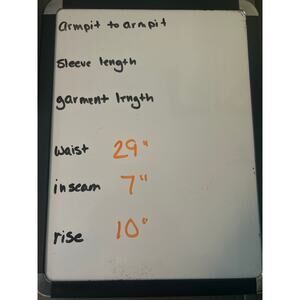 armpit to armpit
sleeve length
garment length
waist 29"
inseam 7"
rise 10"